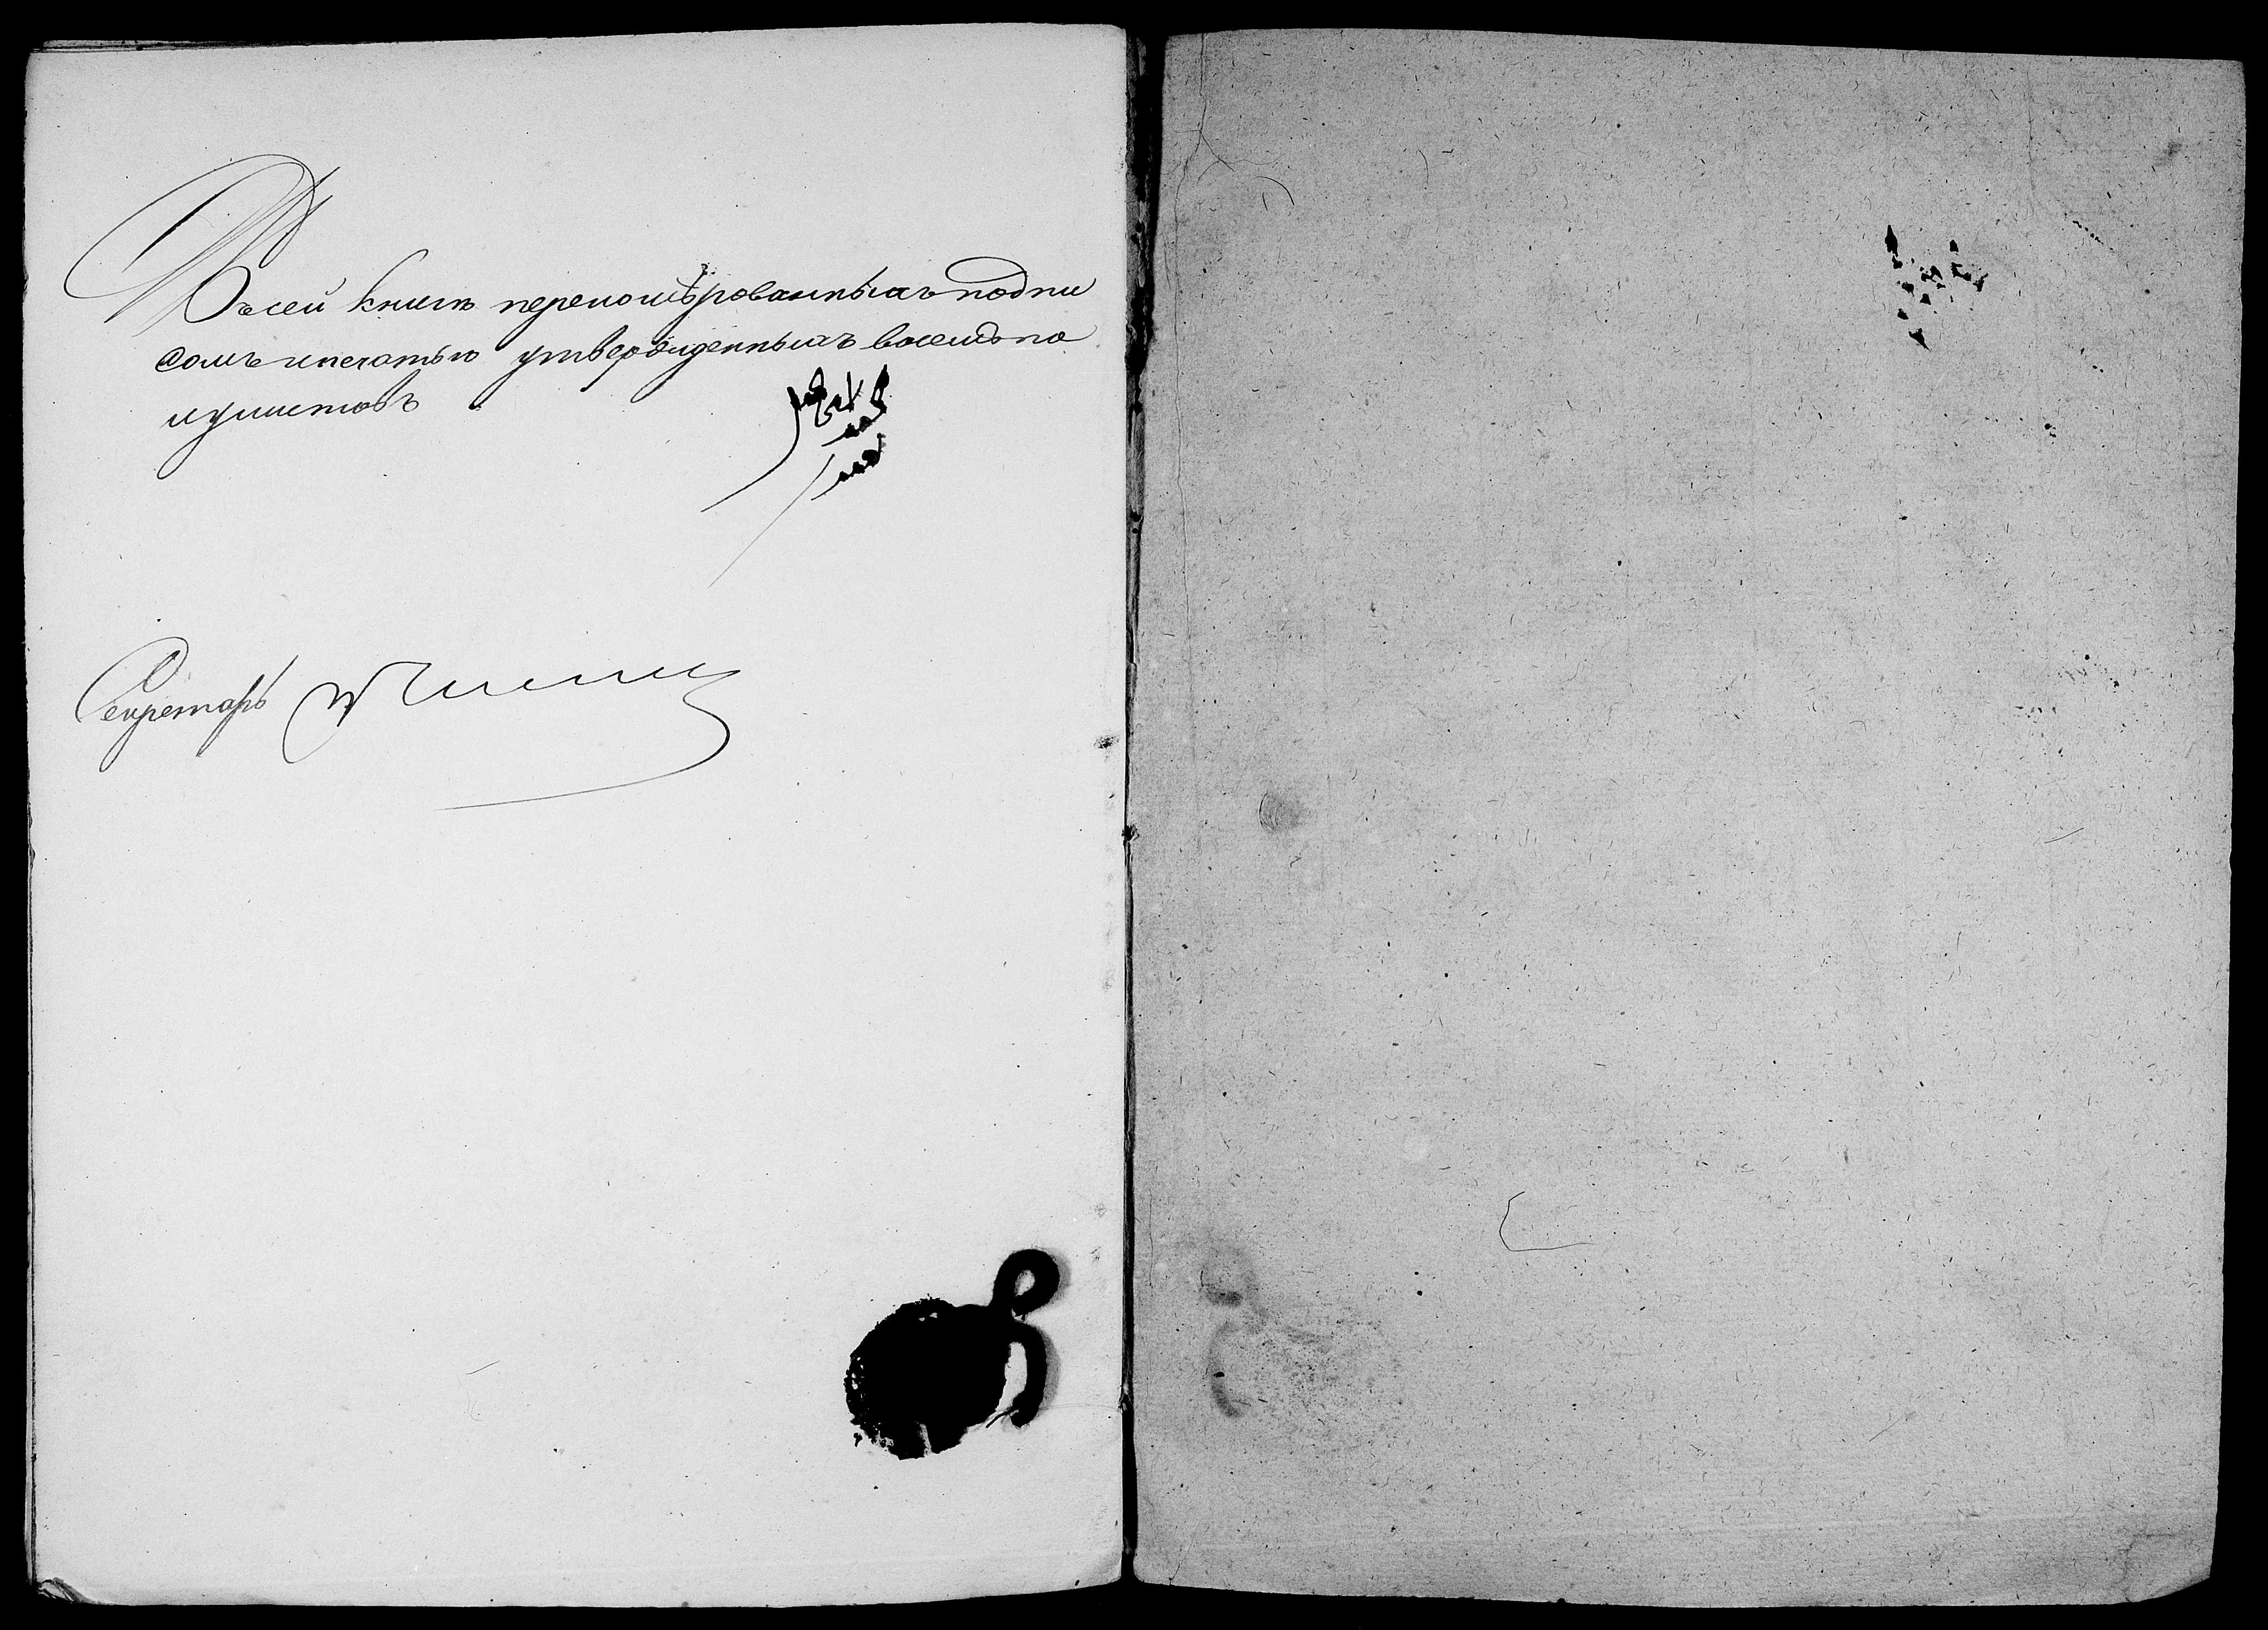 Въ сей книге переномѣрованныхъ подпи
сомъ и печатью утвержденныхъ восемь по
лулистовъ
Секретарь